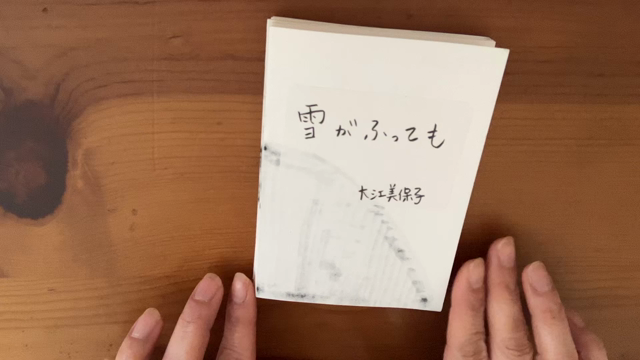 雪がふっても
大江美保子